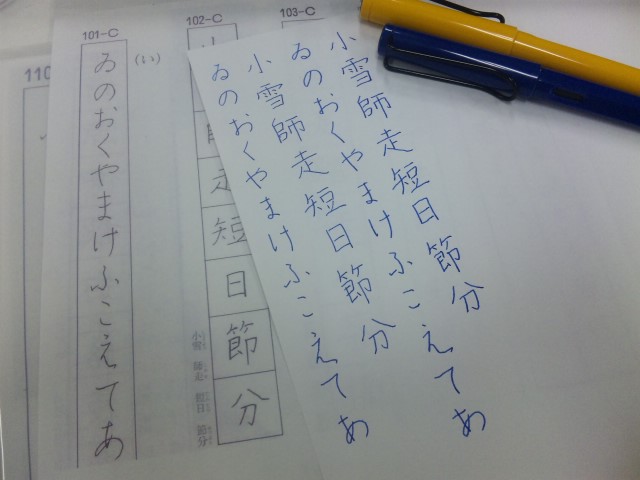 103-C
小雪師走短日節分
ゐのおくやまけふこえてあ
小雪師走短日節分
ゐのおくやまけふこえてあ
102-C
走短日節分
小雪 師走 短日 節分
101-C
(い)
ゐのおくやまけふこえてあ
110